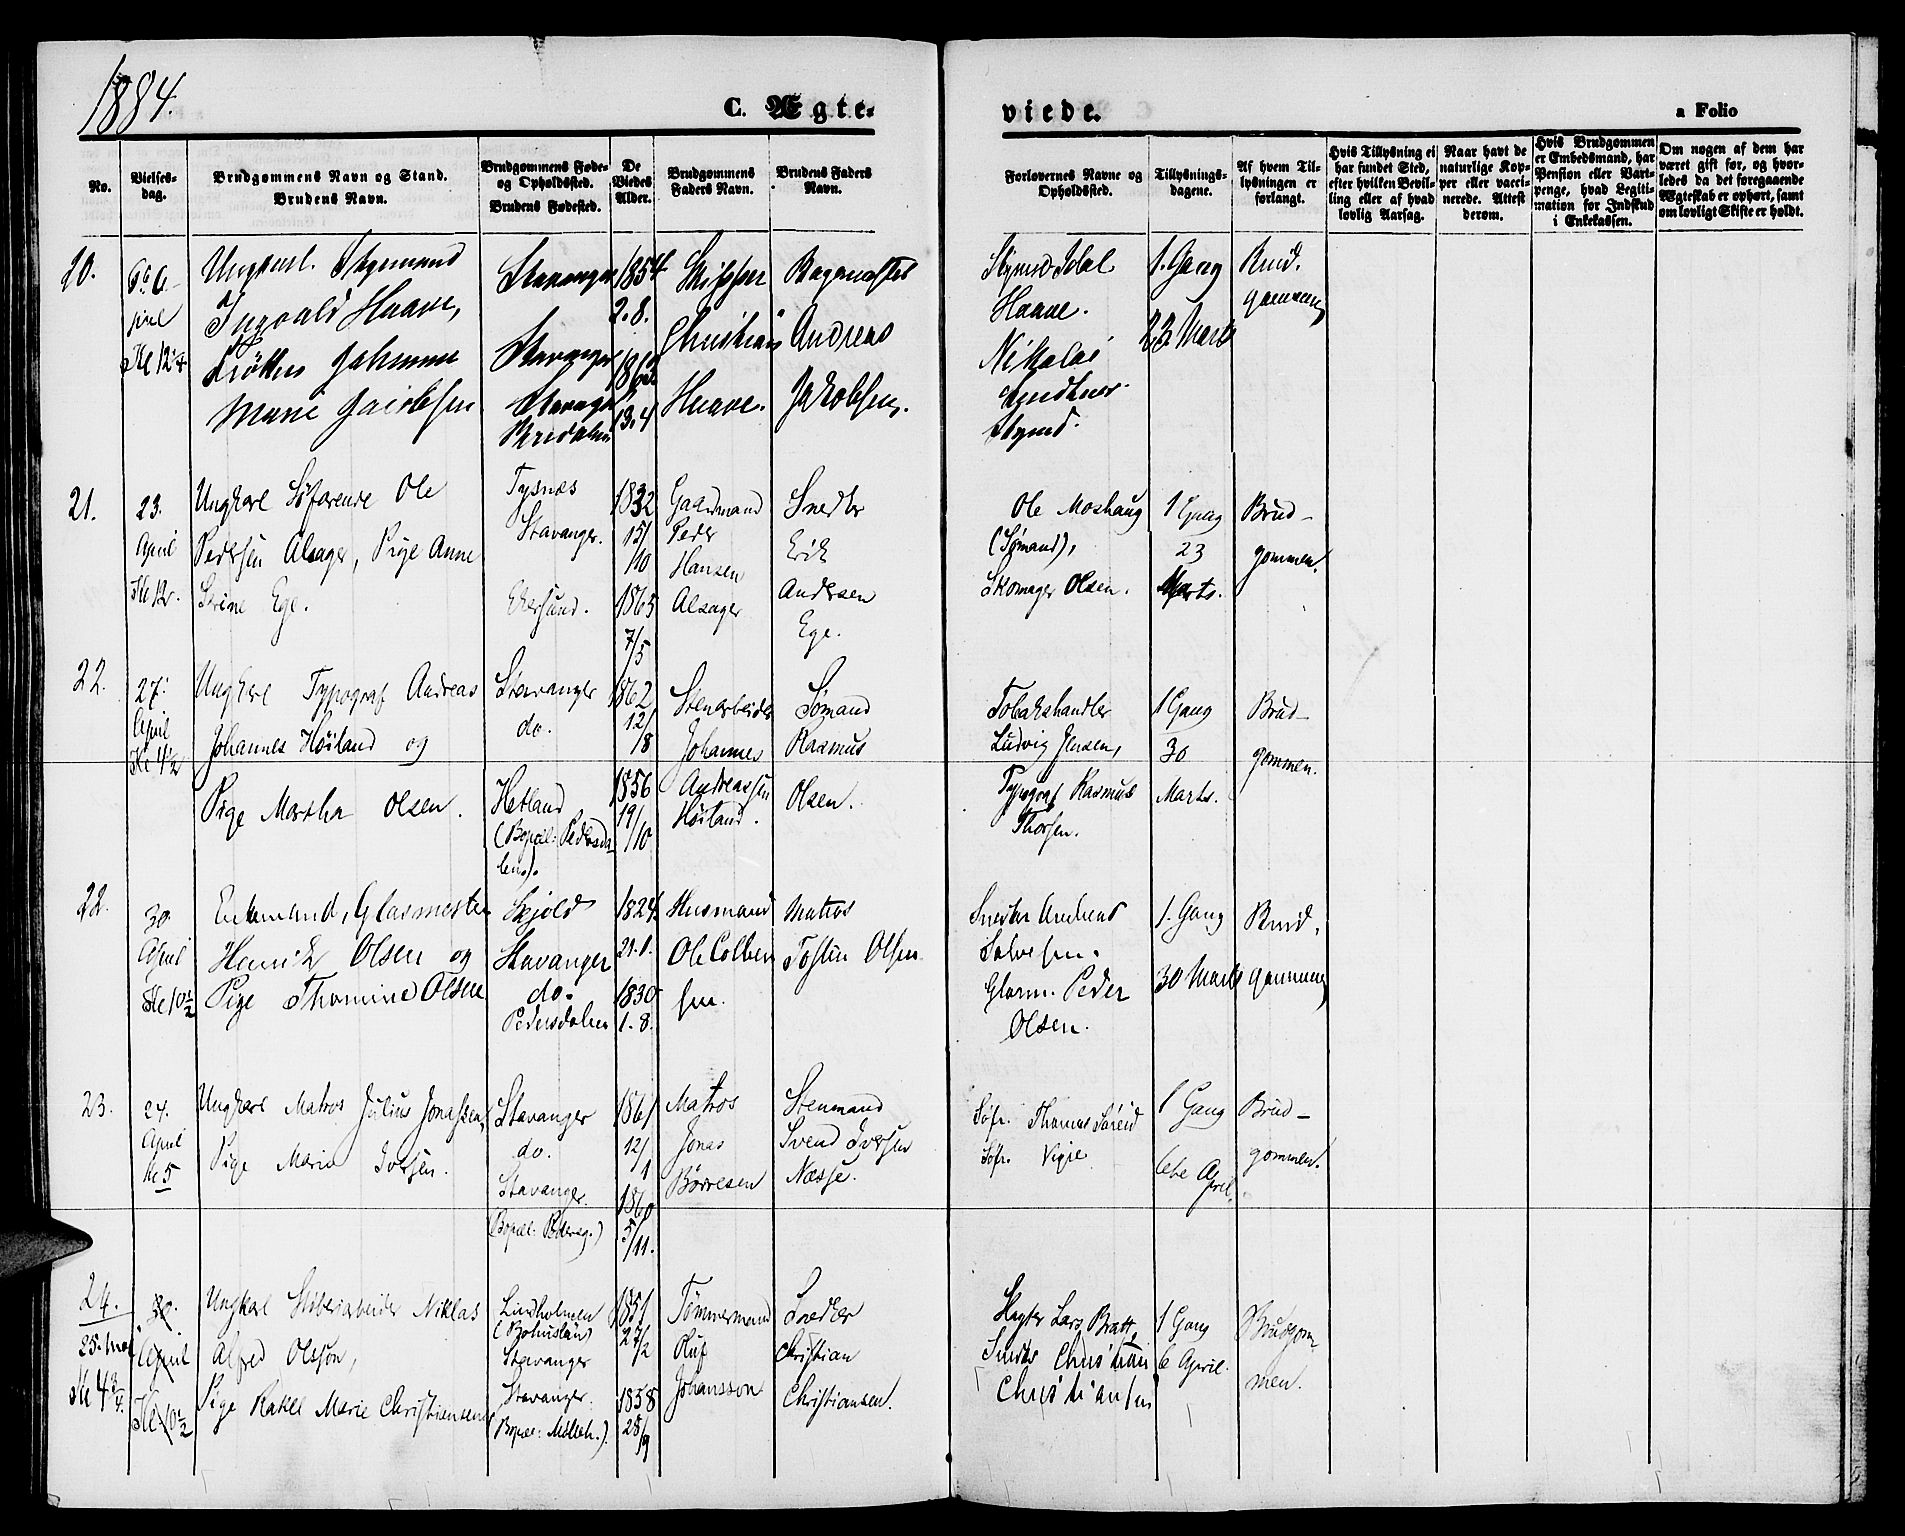 1884.
C. Ægte-
viede.
a Folio
No.
Vielses-
dag.
Brudgommens Navn og Stand.
Brudens Navn.
Brudgommens Føde-
og Opholdssted.
Brudens Fødested.
De
Viedes
Alder.
Brudgommens
Faders Navn.
Brudens Faders
Navn.
Forlovernes Navne og
Opholdssted.
Tillysnings-
dagene.
Af hvem Til-
lysningen er
forlangt.
Hvis Tillysning ei
har fundet Sted,
efter hvilken Bevil-
ling eller af hvad
lovlig Aarsag.
Naar havt de
naturlige Kop-
per eller vacci-
nerede. Attest
derom.
Hvis Brudgommen
er Embedsmand, har
Pension eller Vart-
penge, hvad Legiti-
mation for Indskud
i Enkekassen.
Om nogen af dem har
været gift før, og hvor-
ledes da det foregaaende
Ægteskab er ophørt, samt
om lovligt Skifte er holdt.
Ungkarl
Ingvald Haave,
Marie Jacobsen
Stavanger
Stavanger
Stavanger
1854
2.8.
13.4
Skipper
Christian
Haave.
Andreas
Jakobsen.
Haave.
Nikolai
1. Gang
23 Marts
Brud-
gommen
21.
23.
April
Kl 12.
Ungkarl Søfarende Ole
Pedersen Alsager, Pige Anne
Serine Ege.
Tysnæs
Stavanger.
Ekersund.
1832
15/
10
1865
7/5
Gaardmand
Peder
Hansen
Alsager
Snedker
Erik
Andersen
Ege.
Ole Moshaug
(Sømand),
Skomager Olsen.
1 Gang
23
Marts.
Brud-
gommen.
22.
27.
April
Kl 4½
Ungkarl Typograf Andreas
Johannes Høiland og
Pige Martha Olsen.
Stavanger
do.
Hetland
(Bopæl: Pedersda-
len).
1862
12/
8
1856
19/
10
Stenarbeider
Johannes
Andreassen
Høiland.
Sømand
Rasmus
Olsen.
Tobakshandler
Ludvig Jensen,
Typograf Rasmus
Thorsen.
1 Gang
30
Marts.
Brud-
gommen.
22.
30.
April
Kl 10½
Enkemand, Glasmester
Henrik Olsen og
Pige Thomine Olsen
Skjold
Stavanger
do.
Pedersdalen
1824
21.1.
1830
1.8.
Husmand
Ole Colben
sen.
Matros
Tosten Olsen
Snedker Andreas
Salvesen.
Glasm. Peder
Olsen.
1. Gang
30 Marts
Brud-
gommen
23.
24.
April
Kl 5
Ungkarl Matros Julius Jonassen,
Pige Maria Iversen.
Stavanger
do.
Stavanger.
(Bopæl: Pedersg.)
1861
12/
1
1860
5/11.
Matros
Jonas
Børresen
Stenmand
Svend Iversen
Næsse.
Søfr. Thomas
Søfr. Vigre
1 Gang
6te April.
Brud-
gommen.
24.
30.
April
Kl 10½
25. Mai
Kl 4¾
Ungkarl Skibsarbeider Niklas
Alfred Olsson,
Pige Rakel Marie Christiansen
Lindholmen
(Bohuslän)
Stavanger
Stavanger.
(Bopæl: Mølleh.).
1851
27/2
1858
28/9
Tømmermand
Oluf
Johansson
Snedker
Christian
Christiansen.
Lars Bratt,
Christian
Christiansen
1 Gang
6 April.
Brudgom-
men.